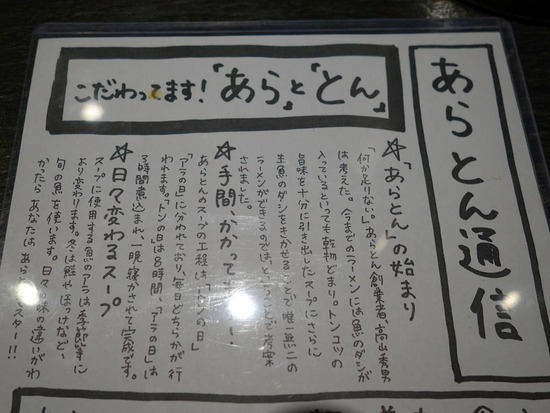 あらとん通信
こだわってます!「あら」と「とん」
☆「あらとん」の始まり
「何か足りない。」あらとん創業者、高山秀男
は考えた。今までのラーメンには魚のダシが
入っているといっても乾物どまり。トンコツの
旨味を十分に引き出したスープにさらに
生魚のダシをきかせることで唯一無二の
ラーメンができるのでは、ということで考案
されました。
☆手間、かかって
あらとんのスープの工程は、「トンの日」
「アラの日」に分かれており、毎日どちらかが行
われます。「トンの日」は8時間、「アラの日」は
3時間煮込まれ、一晩寝かされて完成です。
☆日々変わるスープ
スープに使用する魚のアラは季節に
より変わります。冬は鮭やほっけなど、
旬の魚を使います。日々の味の違いがわ
かったらあなたはあら
スター!!!